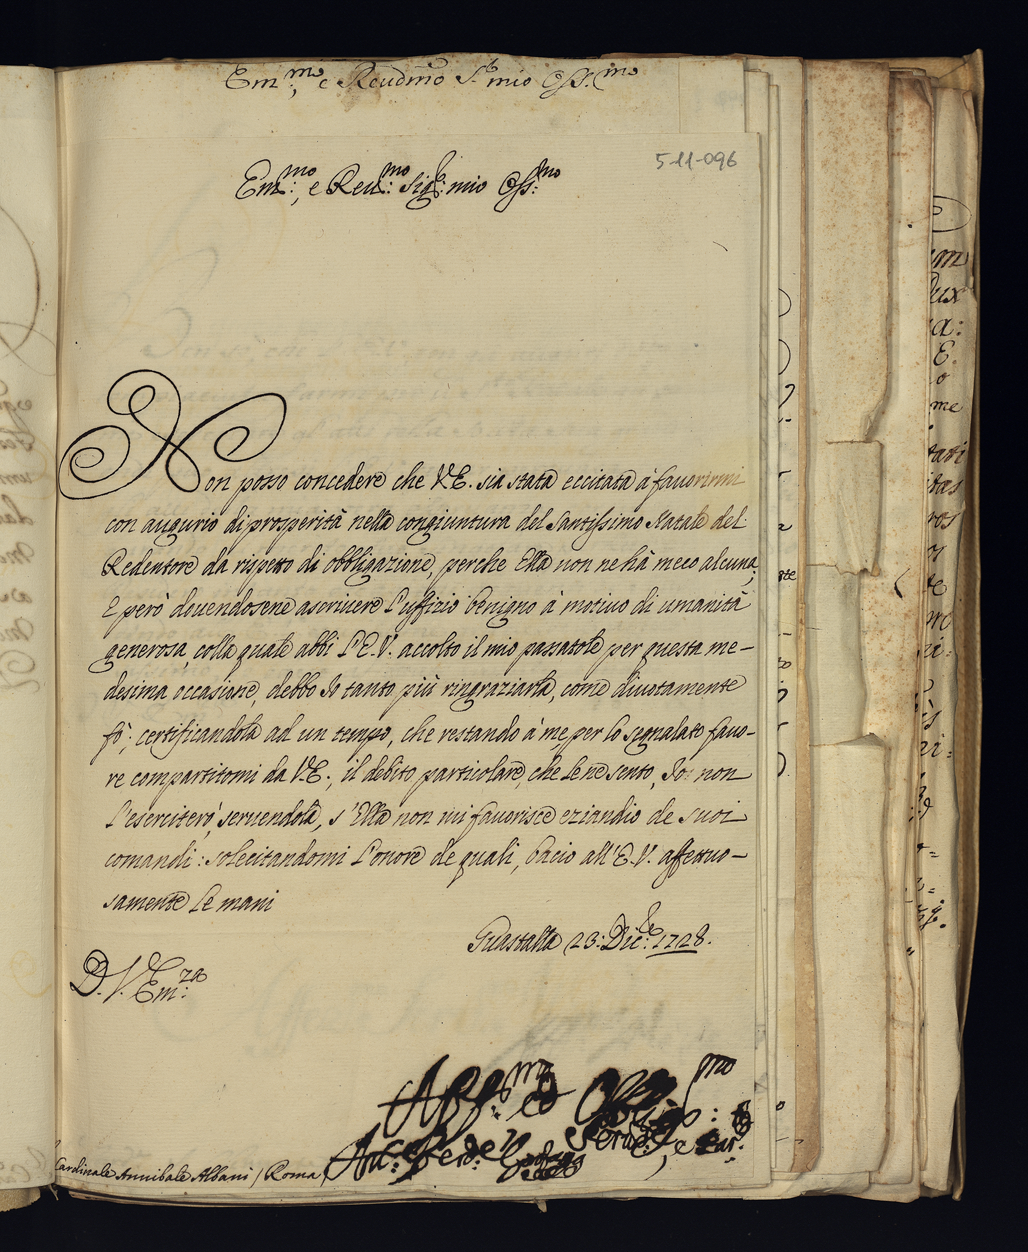 Em.mo, e Reudmo S.r mio Oss.mo
5-11-096
Em.mo, e Reu.mo Sig.r mio Oss.mo
Non posso concedere che V.E. sia stata eccitata à favorirmi
con augurio di prosperità nella congiuntura del Santissimo Natale del
Redentore da rispetto di obbligazione, perche Ella non ne hà meco alcuna;
E però douendosene ascriuere l'uffizio benigno à motiuo di umanità
generosa, colla quale abbi l'E.V. accolto il mio passatole per questa me-
desima occasione, debbo Io tanto più ringraziarla, come diuotamente
fò; certificandola ad un tempo, che restando à me, per lo segnalato fauo-
re compartitomi da V.E., il debito particolare, che le ne sento, Io non
l'eserciterò, seruendola, s'Ella non mi favorisce eziandio de suoi
comandi: solecitandomi l'onore de quali, bacio all'E.V. affettuo-
samente le mani
Guastalla 23: Dic.e 1728.
D. V. Em.za
Aff.mo
Ser.
Cardinale Annibale Albani / Roma